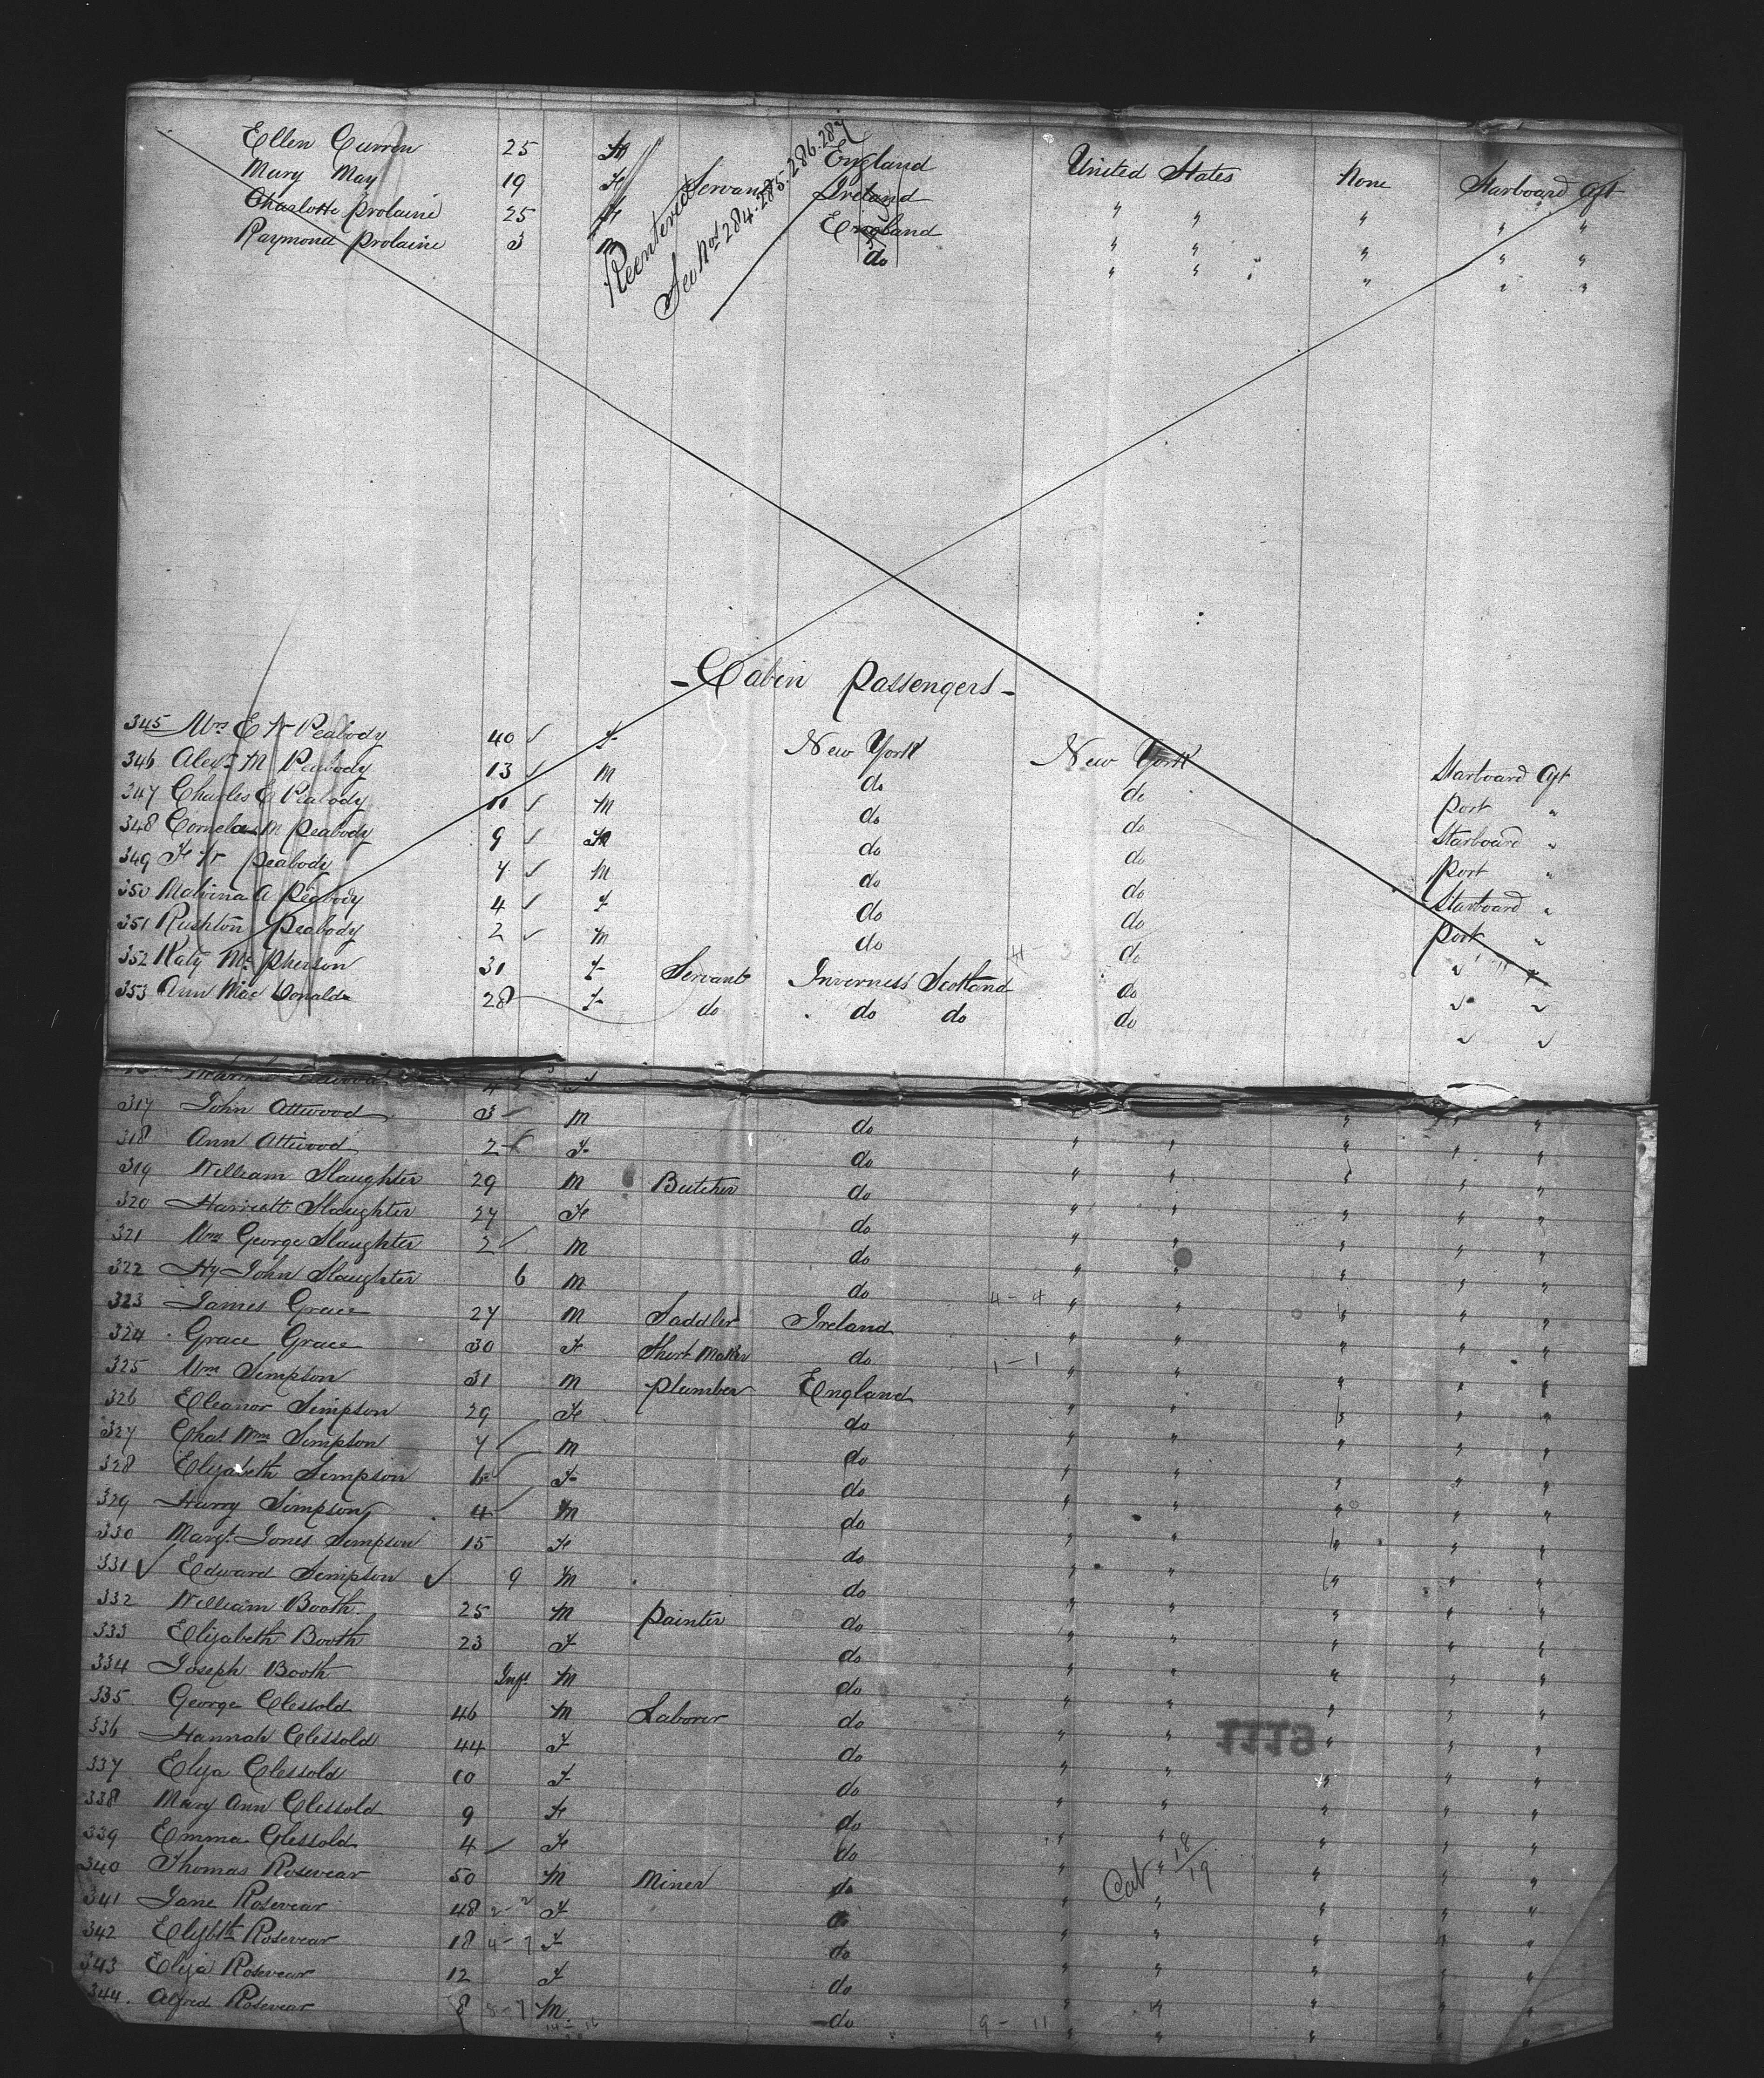 Ellen Curren 25 F England United States None Starboard Aft
Mary May 19 F Servant Ireland " " " " "
Charlotte Prolaine 25 F England " " " " "
Raymond Prolaine 3 M do " " " " "
Reentered
See Nos 284.285.286.287
- Cabin Passengers -
345 Mrs E W Peabody 40 ✓ F New York New York Starboard Aft
346 Alex M Peabody 13 ✓ M do do Port "
347 Charles E Peabody 11 ✓ M do do Starboard "
348 Cornela M Peabody 9 ✓ do do Port "
349 F W Peabody 7 ✓ M do do Starboard "
350 Malvina A Peabody 4 ✓ F do do Port "
351 Rushton Peabody 2 ✓ M do do " "
352 Katy McPherson 31 F Servant Inverness Scotland do " "
353 Ann MacDonald 28 F do do do do " "
4 F
317 John Attwood 3 M do " " " " "
318 Ann Attwood 2 F do " " " " "
319 William Slaughter 29 M Butcher do " " " " "
320 Harriett Slaughter 27 F do " " " " "
321 Wm George Slaughter 2 ✓ M do " " " " "
322 Hy John Slaughter 6 M do 4-4 " " " " "
323 James Grace 27 M Saddler Ireland " " " " "
324 Grace Grace 30 F Shirt Maker do 1-1 " " " " "
325 Wm Simpson 31 M Plumber England " " " " "
326 Eleanor Simpson 29 F do " " " " "
327 Chas Wm Simpson 7 ✓ M do " " " " "
328 Elizabeth Simpson 6 ✓ F do " " " " "
329 Harry Simpson 4 ✓ M do " " " " "
330 Margt Jones Simpson 15 F do " " " " "
331 ✓ Edward Simpson ✓ 9 M do " " " " "
332 William Booth 25 M Painter do " " " " "
333 Elizabeth Booth 23 F do " " " " "
334 Joseph Booth Inft M do " " " " "
335 George Clessold 46 M Laborer do " " " " "
336 Hannah Clessold 44 F do " " " " "
337 Eliza Clessold 10 F do " " " " "
338 Mary Ann Clessold 9 F do " " " " "
339 Emma Clessold 4 ✓ F do " " " " "
340 Thomas Rosevear 50 M Miner do " " " " "
341 Jane Rosevear 48 2-2 F do " " " " "
342 Elizbth Rosevear 18 4-7 F do " " " " "
343 Eliza Rosevear 12 F do " " " " "
344 Alfred Rosevear 8 8-7 M do 9-11 " " " " "
18/19